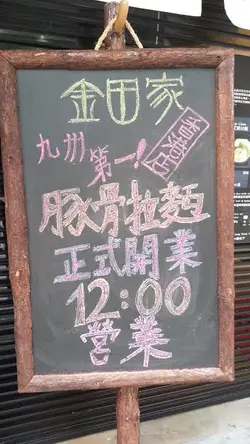 金田家
九州第一!
香港店
豚骨拉麵
正式開業
12:00
營業